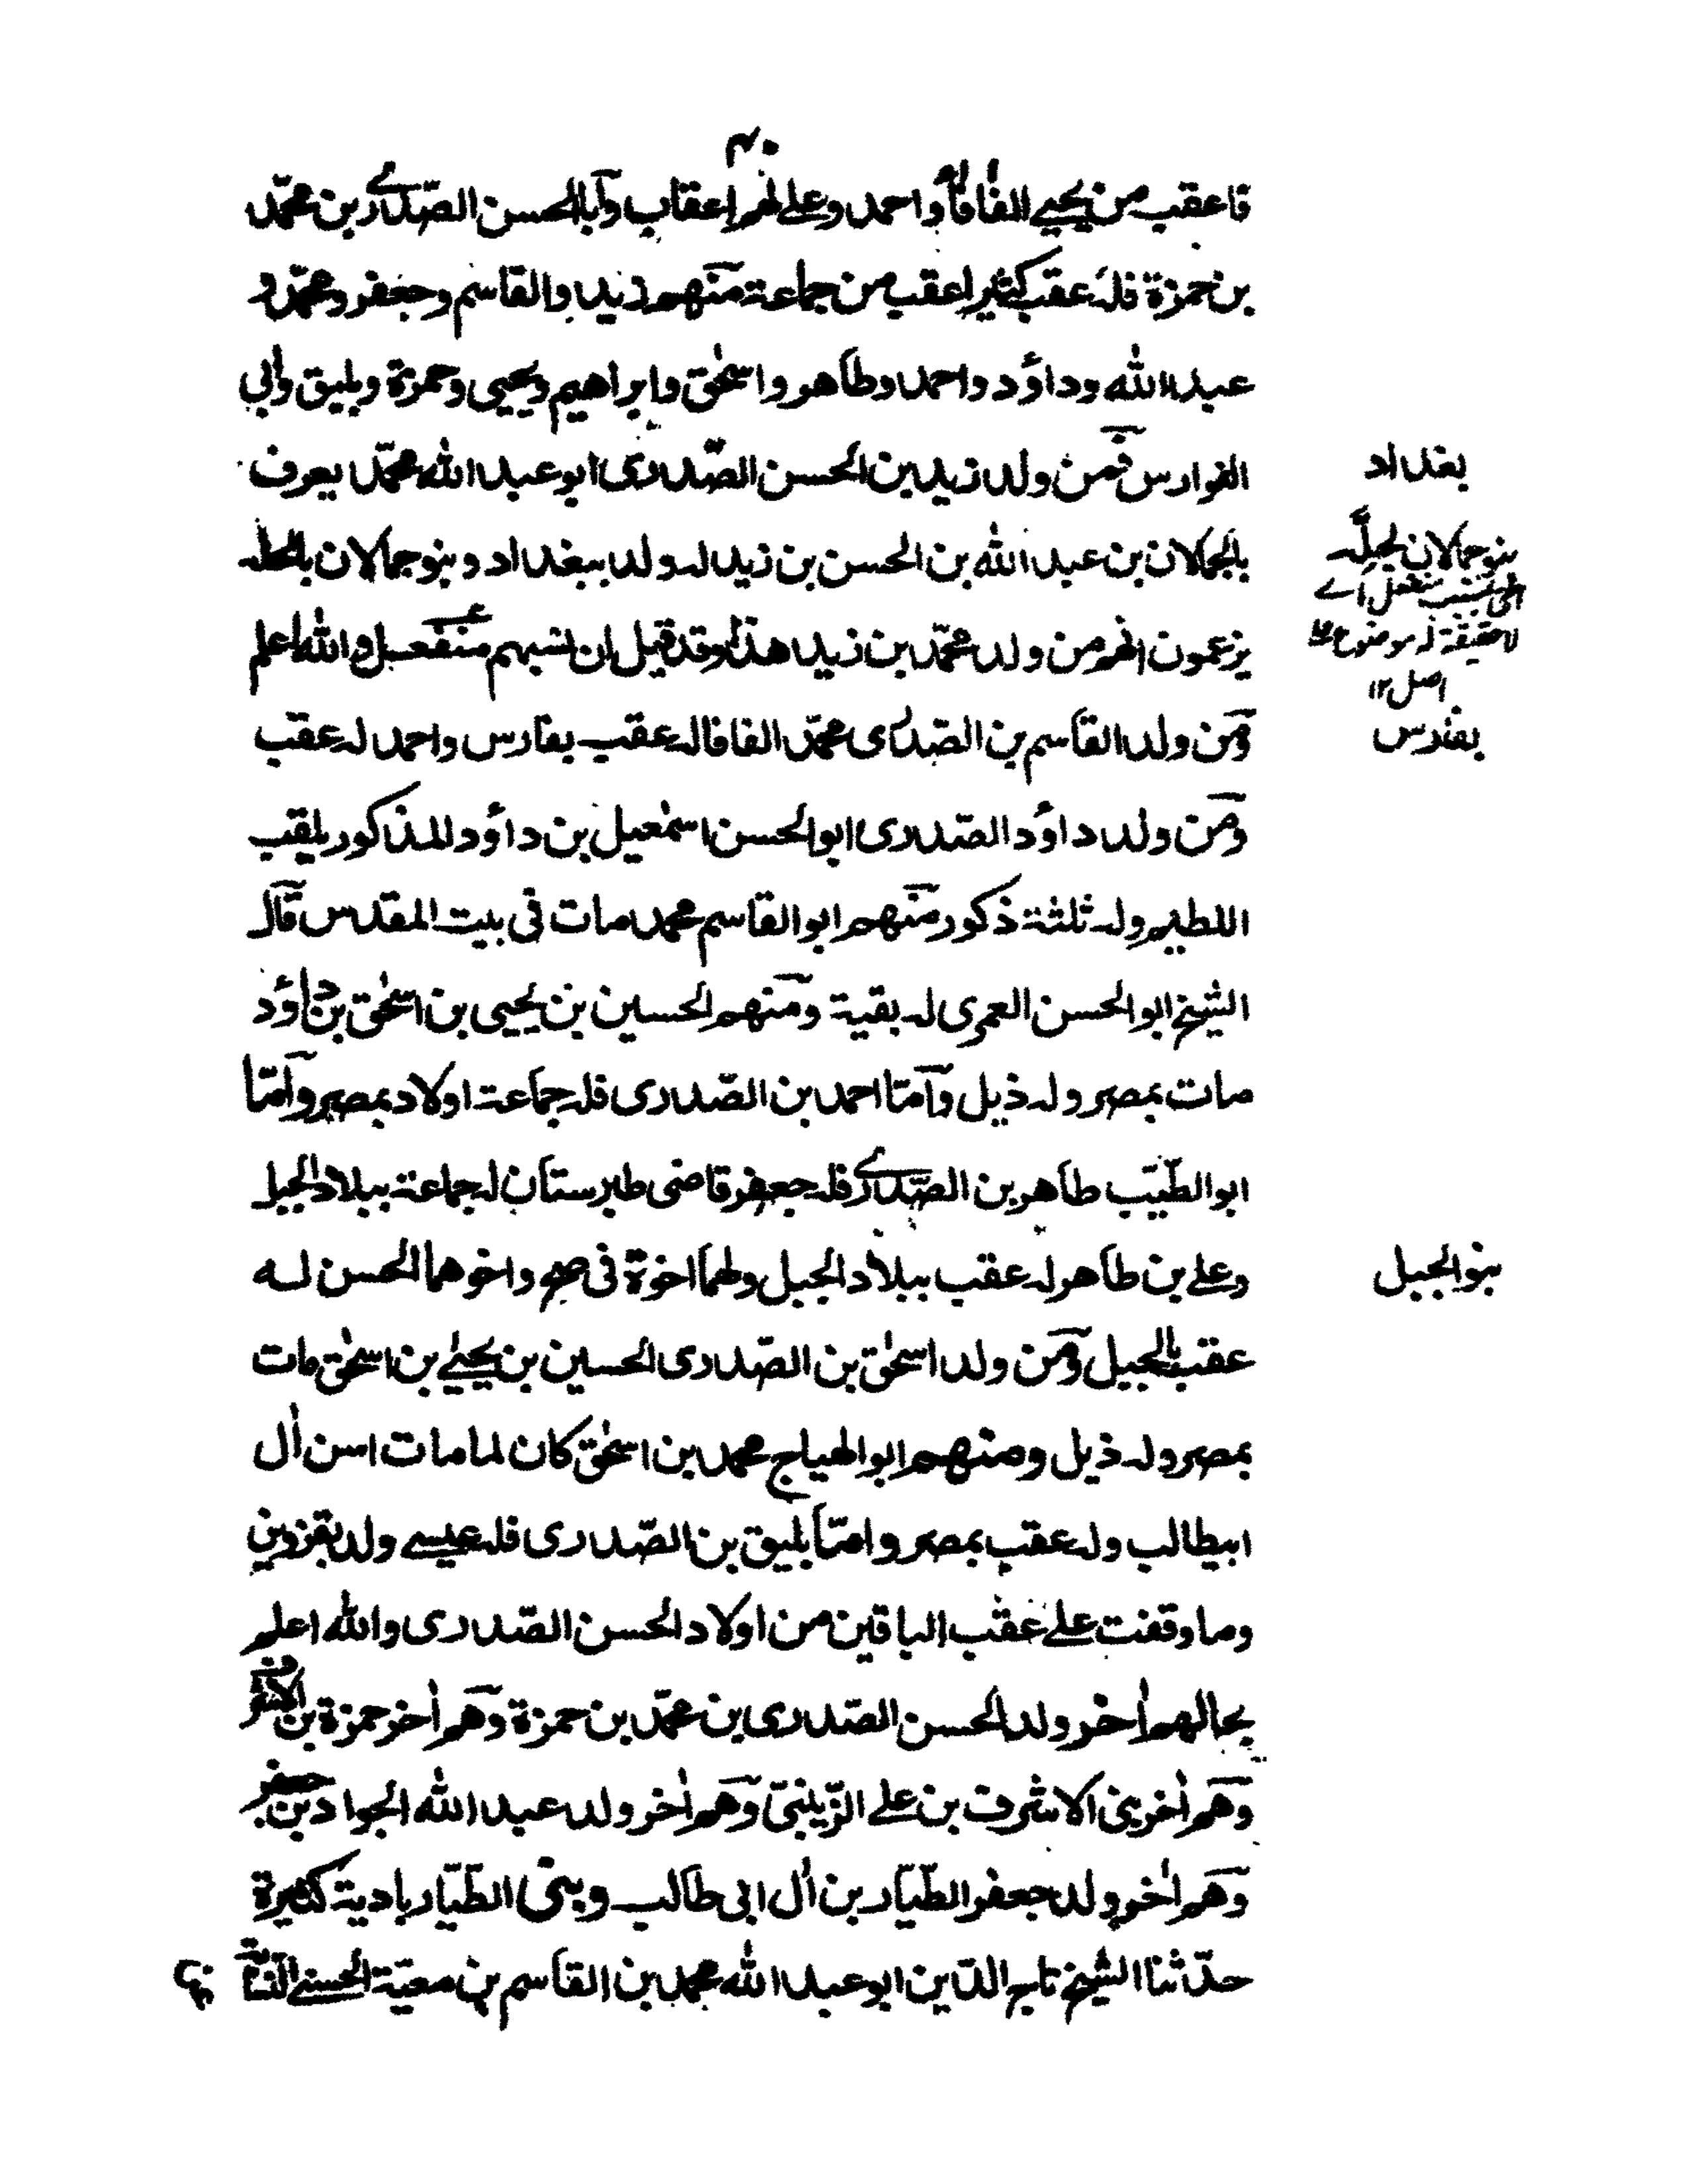 ۴۰
فاعقب من يحيى الفافا واحمد وعلى لهم اعقاب واما الحسن الصدرى بن محمد
بن حمزة فله عقب كثير اعقب من جماعة منهم زيد والقاسم وجعفر ومحمد و
عبد الله وداؤد واحمد وطاهر واسحٰق وابراهيم ويحيى وحمزة وبليق وابى
الفوارس فمن ولد زيد بن الحسن الصدرى ابو عبد الله محمد يعرف
بغداد
بالجمالان بن عبد الله بن الحسن بن زيد له ولد ببغداد وبنو جمالان بالحلة
بنو جمالان بحلة
يزعمون انهم من ولد محمد بن زيد هذا وقد قيل ان نسبهم منفعل والله اعلم
لا حقيقة له موضوع
اصل ١٢
ومن ولد القاسم بن الصدرى محمد الفافا له عقب بفارس واحمد له عقب
بفارس
ومن ولد داؤد الصدرى ابو الحسن اسمٰعيل بن داؤد المذكور يلقب
اللطيم وله ثلثة ذكور منهم ابو القاسم محمد مات فى بيت المقدس قال
الشيخ ابو الحسن العمرى له بقية ومنهم الحسين بن يحيى بن اسحٰق بن داؤد
مات بمصر وله ذيل واما احمد بن الصدرى فله جماعة اولاد بمصر واما
ابو الطيب طاهر بن الصدرى فله جعفر قاضى طبرستان له جماعة ببلاد الجبل
وعلى بن طاهر له عقب ببلاد الجبل ولهما اخوة فى صح واخوهما الحسن له
بنو الجبل
عقب بالجبل ومن ولد اسحٰق بن الصدرى الحسين بن يحيى بن اسحٰق مات
بمصر وله ذيل ومنهم ابو الهياج محمد بن اسحٰق كان لما مات اسن اٰل
ابيطالب وله عقب بمصر واما بليق بن الصدرى فله عيسى ولد بقزوين
وما وقفت على عقب الباقين من اولاد الحسن الصدرى والله اعلم
بحالهم اٰخر ولد الحسن الصدرى بن محمد بن حمزة وهم اٰخر حمزة بن الاشرف
وهم اٰخر بنى الاشرف بن على الزينبى وهم اٰخر ولد عبد الله الجواد بن جعفر
وهم اٰخر ولد جعفر الطيار بن اٰل ابى طالب وبنى الطيار بادية كثيرة
حدثنا الشيخ تاج الدين ابو عبد الله محمد بن القاسم بن معية الحسنى النسابة